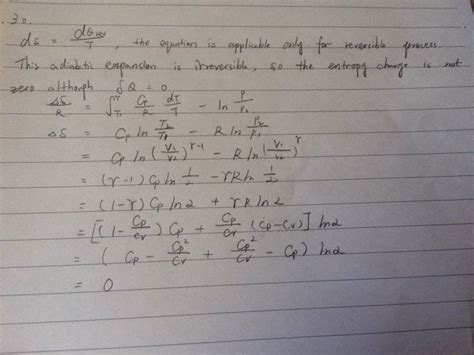 30.
ds = dQrev/T , the equation is applicable only for reversible process.
This adiabatic expansion is irreversible, so the entropy change is not
zero although δQ = 0
ΔS/R = ∫ Cp/R dT/T − ln P/P₁
ΔS = Cp ln T₂/T₁ − R ln P₂/P₁
= Cp ln (V₁/V₂)^(γ−1) − R ln (V₁/V₂)^γ
= (γ−1) Cp ln 1/2 − γR ln 1/2
= (1−γ) Cp ln2 + γR ln2
= [(1 − Cp/Cv) Cp + Cp/Cv (Cp−Cv)] ln2
= ( Cp − Cp²/Cv + Cp²/Cv − Cp) ln2
= 0